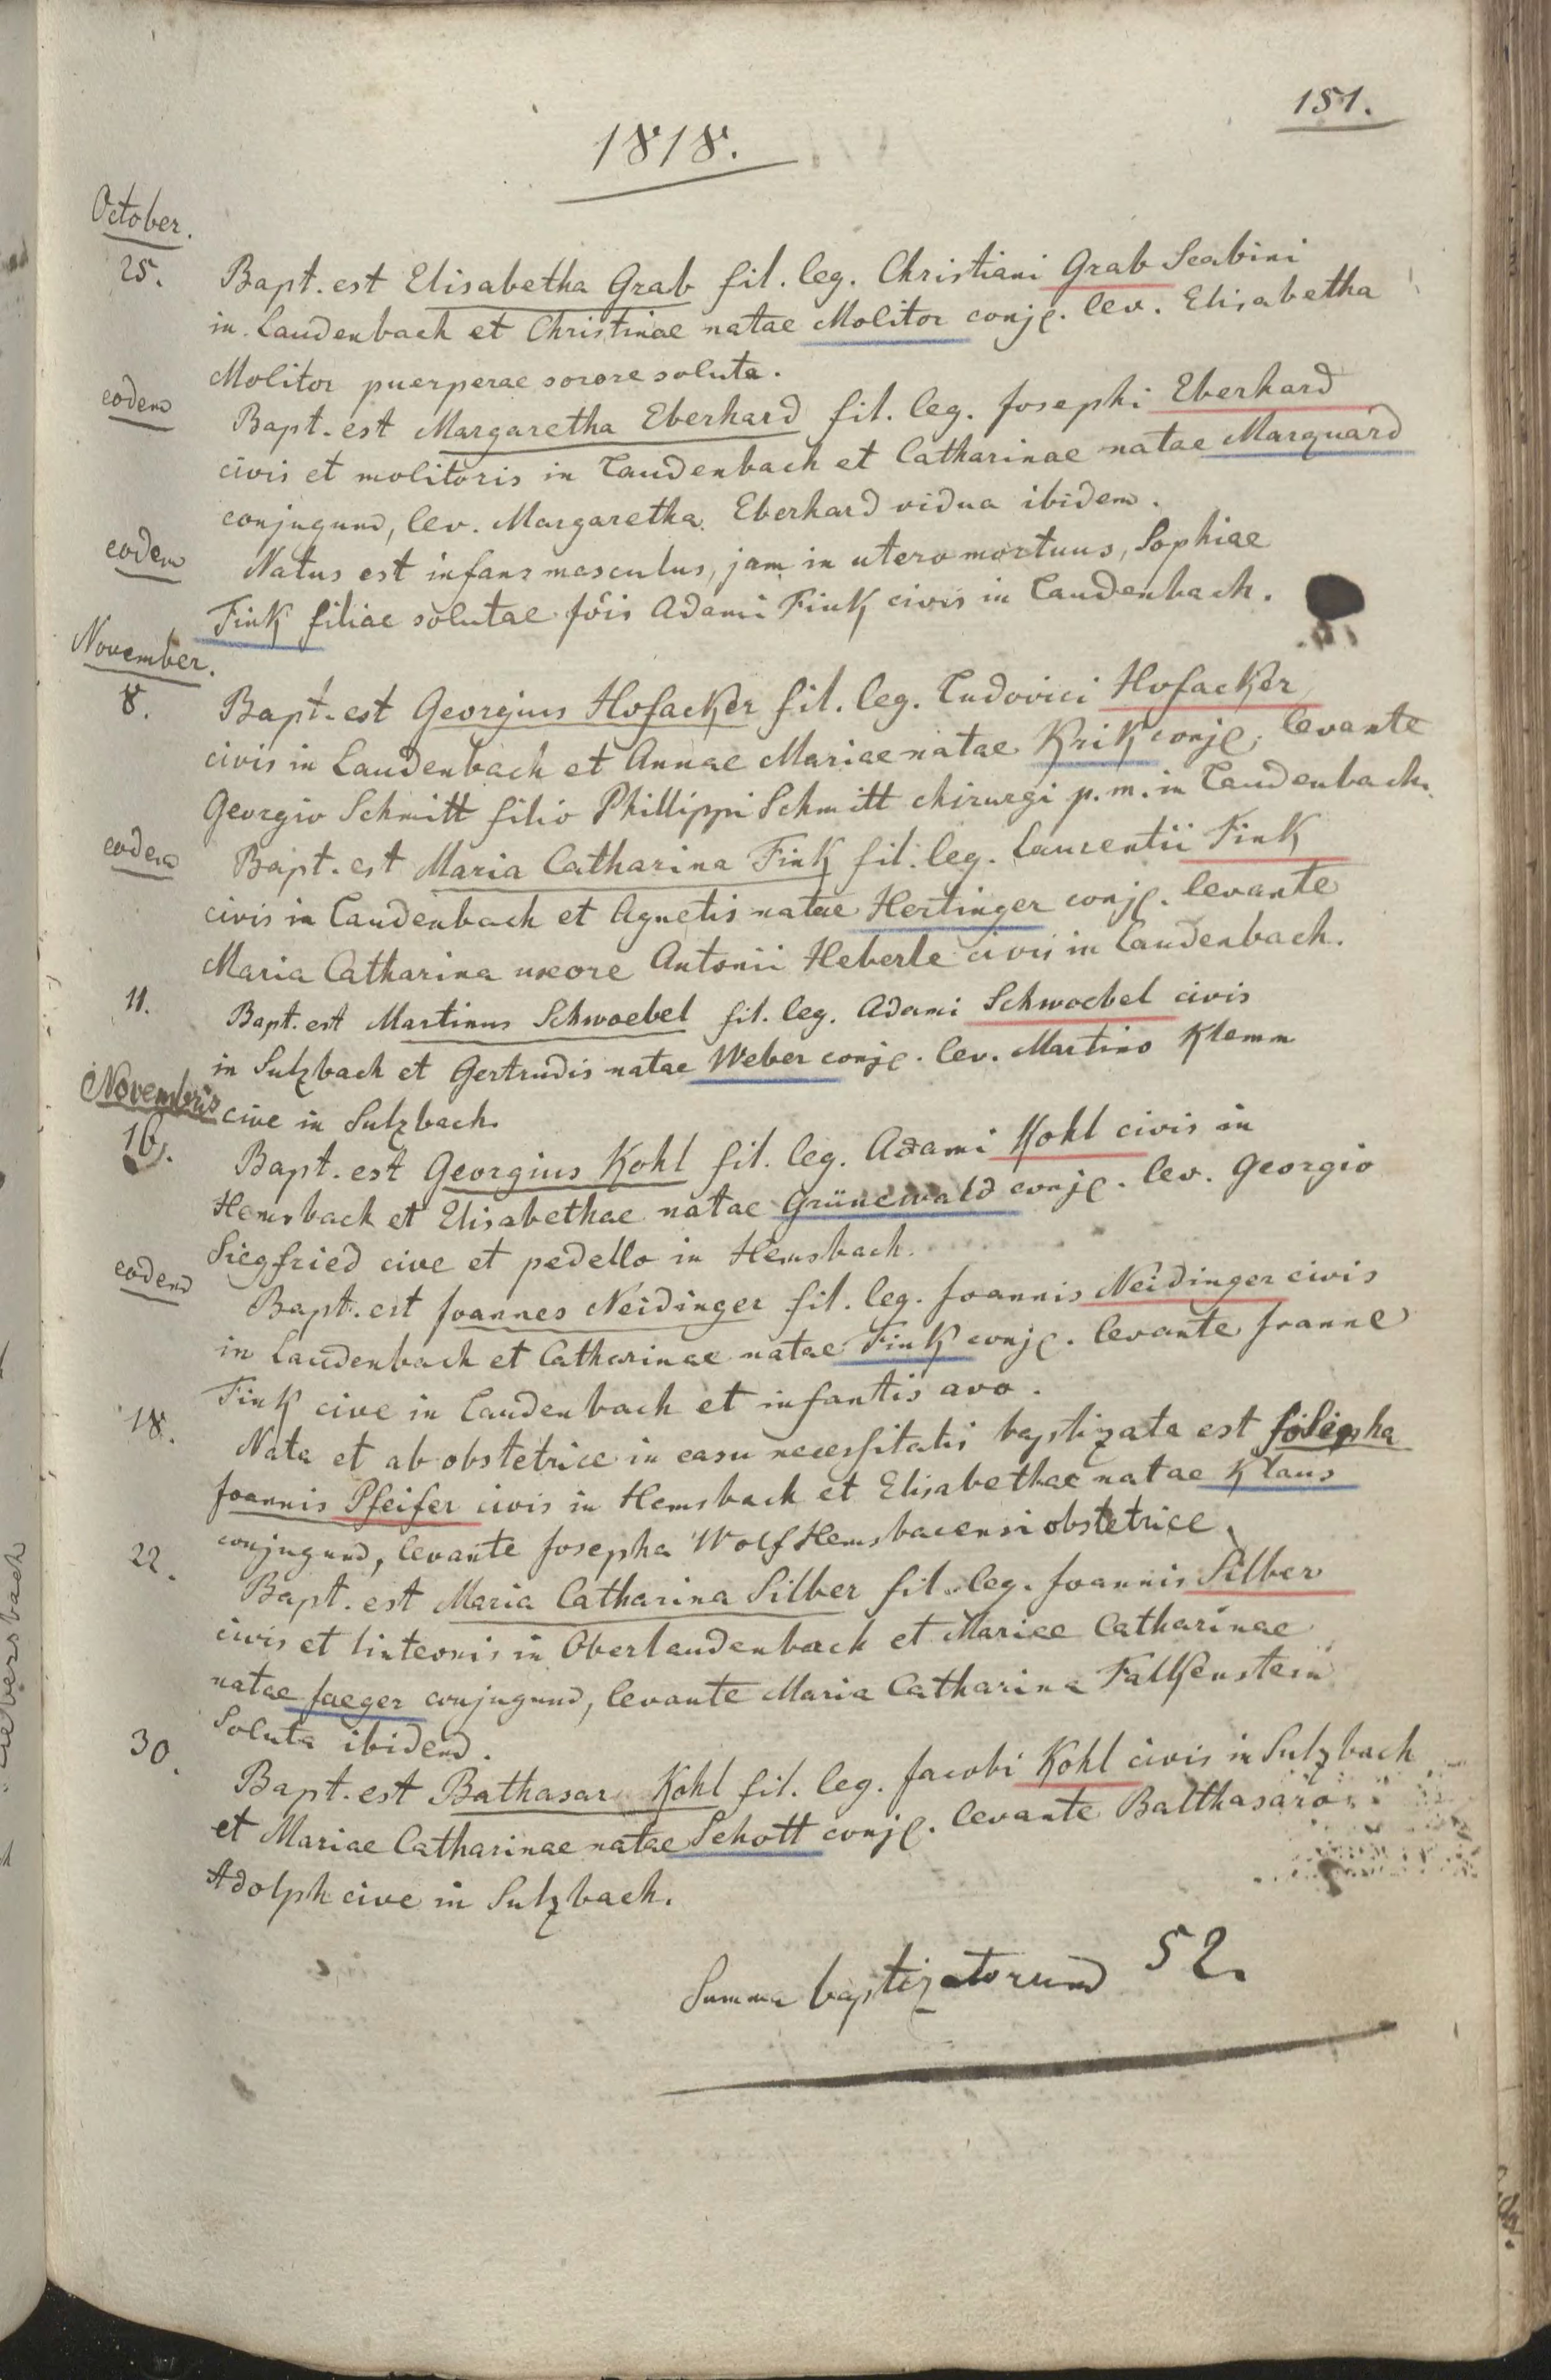 151.
1818.
October.
25. Bapt. est Elisabetha Grab fil. leg. Christiani Grab Scabini
in Laudenbach et Christinae natae Molitor conj. lev. Elisabetha
Molitor puerperae sorore soluta.
eodem Bapt. est Margaretha Eberhard fil. leg. Josephi Eberhard
civis et molitoris in Laudenbach et Catharinae natae Marquard
conjugum, lev. Margaretha Eberhard vidua ibidem.
eodem Natus est infans masculus, jam in utero mortuus, Sophiae
Fink filiae solutae fõis Adami Fink civis in Laudenbach.
November.
8. Bapt. est Georgius Hofacker fil. leg. Ludovici Hofacker
civis in Laudenbach et Annae Mariae natae Krik conj. levante
Georgio Schmitt filio Phillippi Schmitt chirurgi p. m. in Laudenbach.
eodem Bapt. est Maria Catharina Fink fil. leg. Laurentii Fink
civis in Laudenbach et Agnetis natae Hertinger conj. levante
Maria Catharina uxore Antonii Heberle civis in Laudenbach.
11. Bapt. est Martinus Schwoebel fil. leg. Adami Schwoebel civis
in Sulzbach et Gertrudis natae Weber conj. lev. Martino Klemm
Novembris cive in Sulzbach.
16. Bapt. est Georgius Kohl fil. leg. Adami Kohl civis in
Hemsbach et Elisabethae natae Grünewald conj. lev. Georgio
Siegfried cive et pedello in Hemsbach.
eodem Bapt. est Joannes Neidinger fil. leg. Joannis Neidinger civis
in Laudenbach et Catharinae natae Fink conj. levante Joanne
Fink cive in Laudenbach et infantis avo.
18. Nata et ab obstetrice in casu necessitatis baptizata est
Joannis Pfeifer civis in Hemsbach et Elisabethae natae Klaus
conjugum, levante Josepha Wolf Hemsbacensi obstetrice.
22. Bapt. est Maria Catharina Silber fil. leg. Joannis Silber
civis et linteonis in Oberlaudenbach et Mariae Catharinae
natae Jaeger conjugum, levante Maria Catharina Falkenstein
Soluta ibidem.
30. Bapt. est Bathasar Kohl fil. leg. Jacobi Kohl civis in Sulzbach
et Mariae Catharinae natae Schott conj. levante Balthasaro
Adolph cive in Sulzbach.
Summa baptizatorum 52.